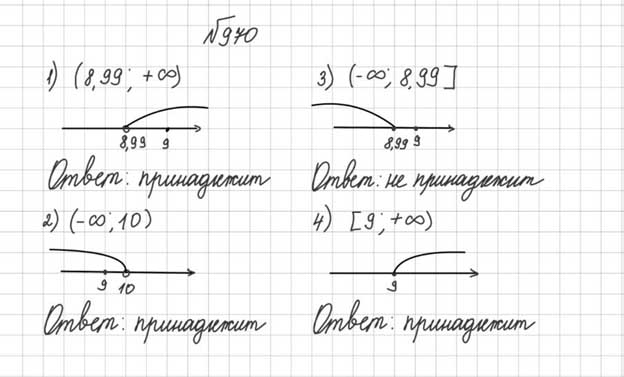 №970
1) (8,99; +∞)
8,99 9
Ответ: принадлежит
2) (-∞; 10)
9 10
Ответ: принадлежит
3) (-∞; 8,99]
8,99 9
Ответ: не принадлежит
4) [9; +∞)
9
Ответ: принадлежит